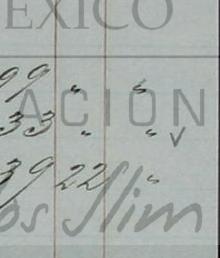 EXICO
99 " "
ACIÓN
33 " " ✓
39 22 "
os Slim